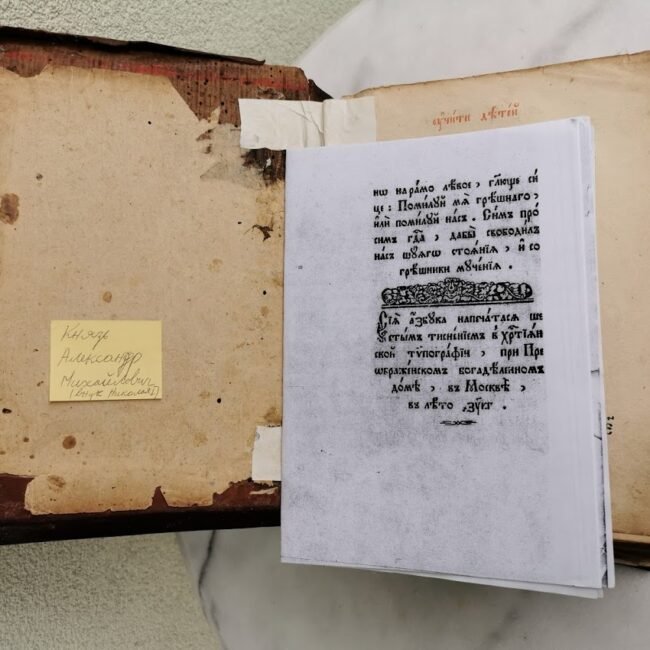 Князь
Александр
Михайлович
(внук Николая I)
оучи́ти дѣте́й
нѡ на ра́мо лѣ́вое, гл҃юще си́
це : Поми́луй мѧ̀ грѣ́шнаго,
и҆лѝ поми́луй на́съ . Си́мъ про́
симъ гд҇а , дабы̀ свободи́лъ
на́съ шу́ѧгѡ стоѧ́нїѧ , и҆ со
грѣ́шники муче́нїѧ .
Сїѧ̀ а҆́збука напеча́тасѧ ше
сты́мъ тисне́нїемъ в̾ хрⷭ҇тїѧ́н
ской тѷпогра́фїи , при Пре
ѡбраже́нскомъ богадѣ́льномъ
до́мѣ , въ Москвѣ̀ ,
въ лѣ́то